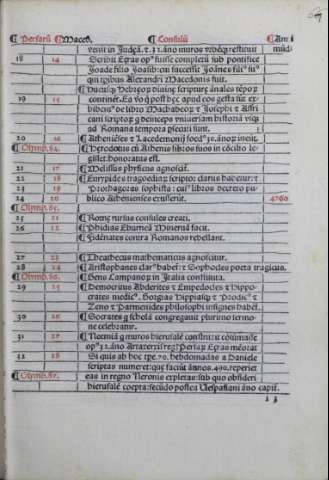 ¶ Persarũ ¶ Maced. ¶ Consulũ ¶ Ani mũdi
venit in Judeã. τ. 12. áno muros vrbẽq; restituit
18 14 Scribit Ezras opꝰ fuisse completũ sub pontifice
Joade filio Joasib: cui successit Joãnes filiꝰ suꝰ
qui tẽpꝰ Alexandri Macedonis fuit.
¶ Hucusq; Hebreoꝝ diuinę scripturę ánales tẽpoꝝ
19 15 continẽt. Ea vo᷒ q̃ post hec apud eos gesta sũt
bemꝰ de libro Machabeoꝝ τ Josephi τ Affri
cani scriptoꝝ q̃ deinceps vniuersam historiã vsq;
ad Romana tempora psecuti sunt.
20 16 ¶ Athenieses τ Lacedemonij feed. 30. ánoꝝ ineũt.
¶ Olymp. 84. ¶ Herodotus cũ Athenis libros suos in cõcilio le-
gisset: honoratus est.
21 17 ¶ Melissus physicus agnoscit.
22 18 ¶ Eurypides tragoediaꝝ scriptor clarus habetur: τ
23 19 Prothagoras sophista: cuiꝰ libros decreto pu-
24 20 blico Athenienses exusserũt. 4760
¶ Olymp. 85.
25 21 ¶ Romę rursus consules creati.
26 22 ¶ Phidias Eburneã Mineruã facit.
¶ Fidenates contra Romanos rebellant.
27 23 ¶ Theathecus mathematicus agnoscitur.
28 24 ¶ Aristophanes clarꝰ habet: τ Sophocles poeta tragicus.
¶ Olymp. 86. ¶ Seno Campanoꝝ in Italia constituta.
29 25 ¶ Democritus Abderites τ Empedocles τ Hippo-
crates medicꝰ. Gorgias Hippiasq; τ Prodicꝰ τ
Zeno τ Parmenides philosophi insignes habẽt.
30 26 ¶ Socrates q̃ scholã congregauit plurimo sermo-
ne celebratur.
31 27 ¶ Neemiã q̃ muros hierusalẽ construit cõsũmasse
opꝰ 32. áno Artaxerxis regꝭ Persaꝝ Ezras meõrat
32 28 Si quis ab hoc tpe. 70. hebdomadas a Daniele
scriptas numeret: que faciũt ánnos. 490. reperiet
¶ Olymp. 87. eas in regno Neronis expletas: sub quo obsideri
hierusalẽ coepta: secũdo postea Vespasiani áno capit.